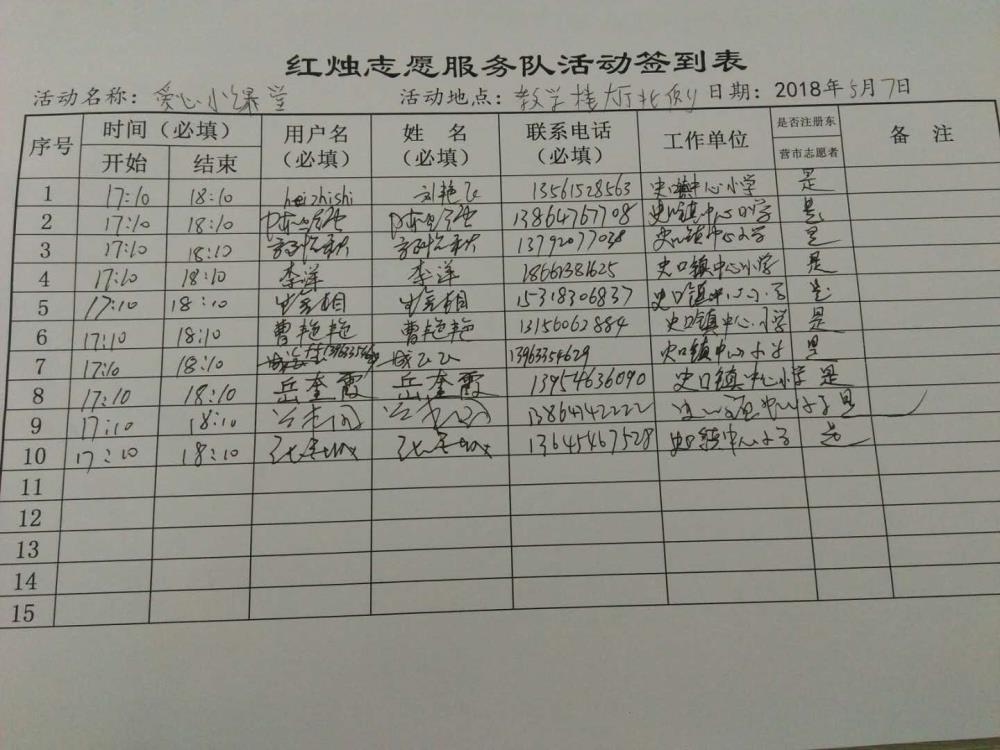 红烛志愿服务队活动签到表
活动名称：爱心小课堂 活动地点：教学楼大厅北侧 日期：2018年5月7日
序号 时间（必填） 用户名（必填） 姓名（必填） 联系电话（必填） 工作单位 是否注册东营市志愿者 备注
开始 结束
1 17:10 18:10 heizhishi 刘艳 13561528563 史口镇中心小学 是
2 17:10 18:10 13864767708 史口镇中心小学 是
3 17:10 18:10 13792077038 史口镇中心小学 是
4 17:10 18:10 李洋 李洋 18661381625 史口镇中心小学 是
5 17:10 18:10 15318306837 史口镇中心小学 是
6 17:10 18:10 曹艳艳 曹艳艳 13156062884 史口镇中心小学 是
7 17:10 18:10 13963354629 史口镇中心小学 是
8 17:10 18:10 岳奎霞 岳奎霞 13954636090 史口镇中心小学 是
9 17:10 18:10 13864142222 是
10 17:10 18:10 13645467528 史口镇中心小学 是
11
12
13
14
15